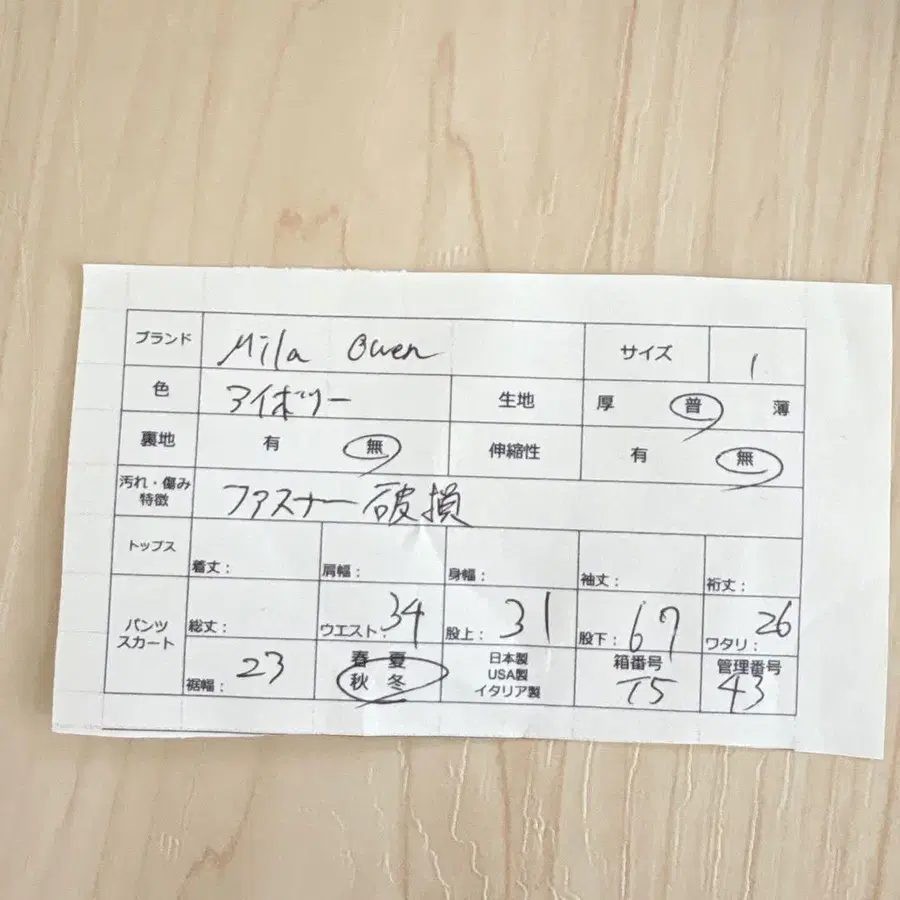 ブランド Mila Owen サイズ 1
色 アイボリー 生地 厚 普 薄
裏地 有 無 伸縮性 有 無
汚れ・傷み
特徴 ファスナー破損
トップス 着丈: 肩幅: 身幅: 袖丈: 裄丈:
パンツ
スカート 総丈: ウエスト: 34 股上: 31 股下: 67 ワタリ: 26
裾幅: 23
春 夏
秋 冬
日本製
USA製
イタリア製
箱番号
T5
管理番号
43